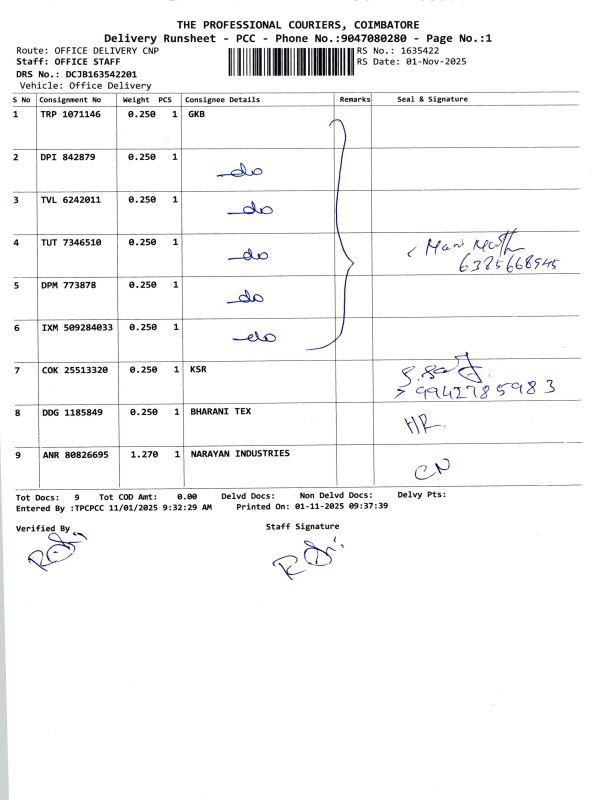 THE PROFESSIONAL COURIERS, COIMBATORE
Delivery Runsheet - PCC - Phone No.:9047080280 - Page No.:1
Route: OFFICE DELIVERY CNP RS No.: 1635422
Staff: OFFICE STAFF RS Date: 01-Nov-2025
DRS No.: DCJB163542201
Vehicle: Office Delivery
S No Consignment No Weight PCS Consignee Details Remarks Seal & Signature
1 TRP 1071146 0.250 1 GKB
2 DPI 842879 0.250 1 -do
3 TVL 6242011 0.250 1 -do
4 TUT 7346510 0.250 1 -do
6385668945
5 DPM 773878 0.250 1 -do
6 IXM 509284033 0.250 1 -do
7 COK 25513320 0.250 1 KSR
9942785983
8 DDG 1185849 0.250 1 BHARANI TEX HR.
9 ANR 80826695 1.270 1 NARAYAN INDUSTRIES CN
Tot Docs: 9 Tot COD Amt: 0.00 Delvd Docs: Non Delvd Docs: Delvy Pts:
Entered By :TPCPCC 11/01/2025 9:32:29 AM Printed On: 01-11-2025 09:37:39
Verified By Staff Signature